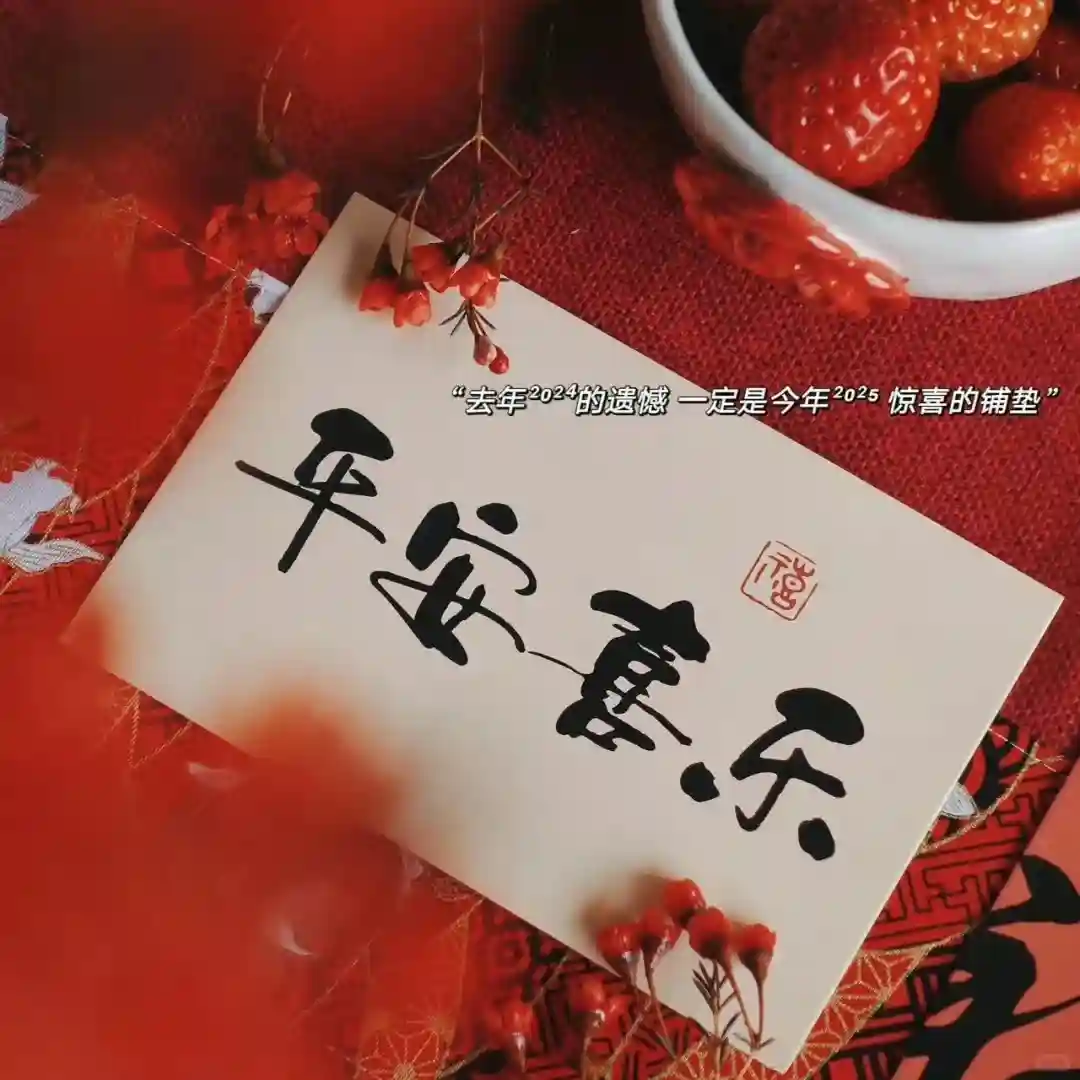 “去年2024的遗憾 一定是今年2025 惊喜的铺垫”
平安喜乐
禧